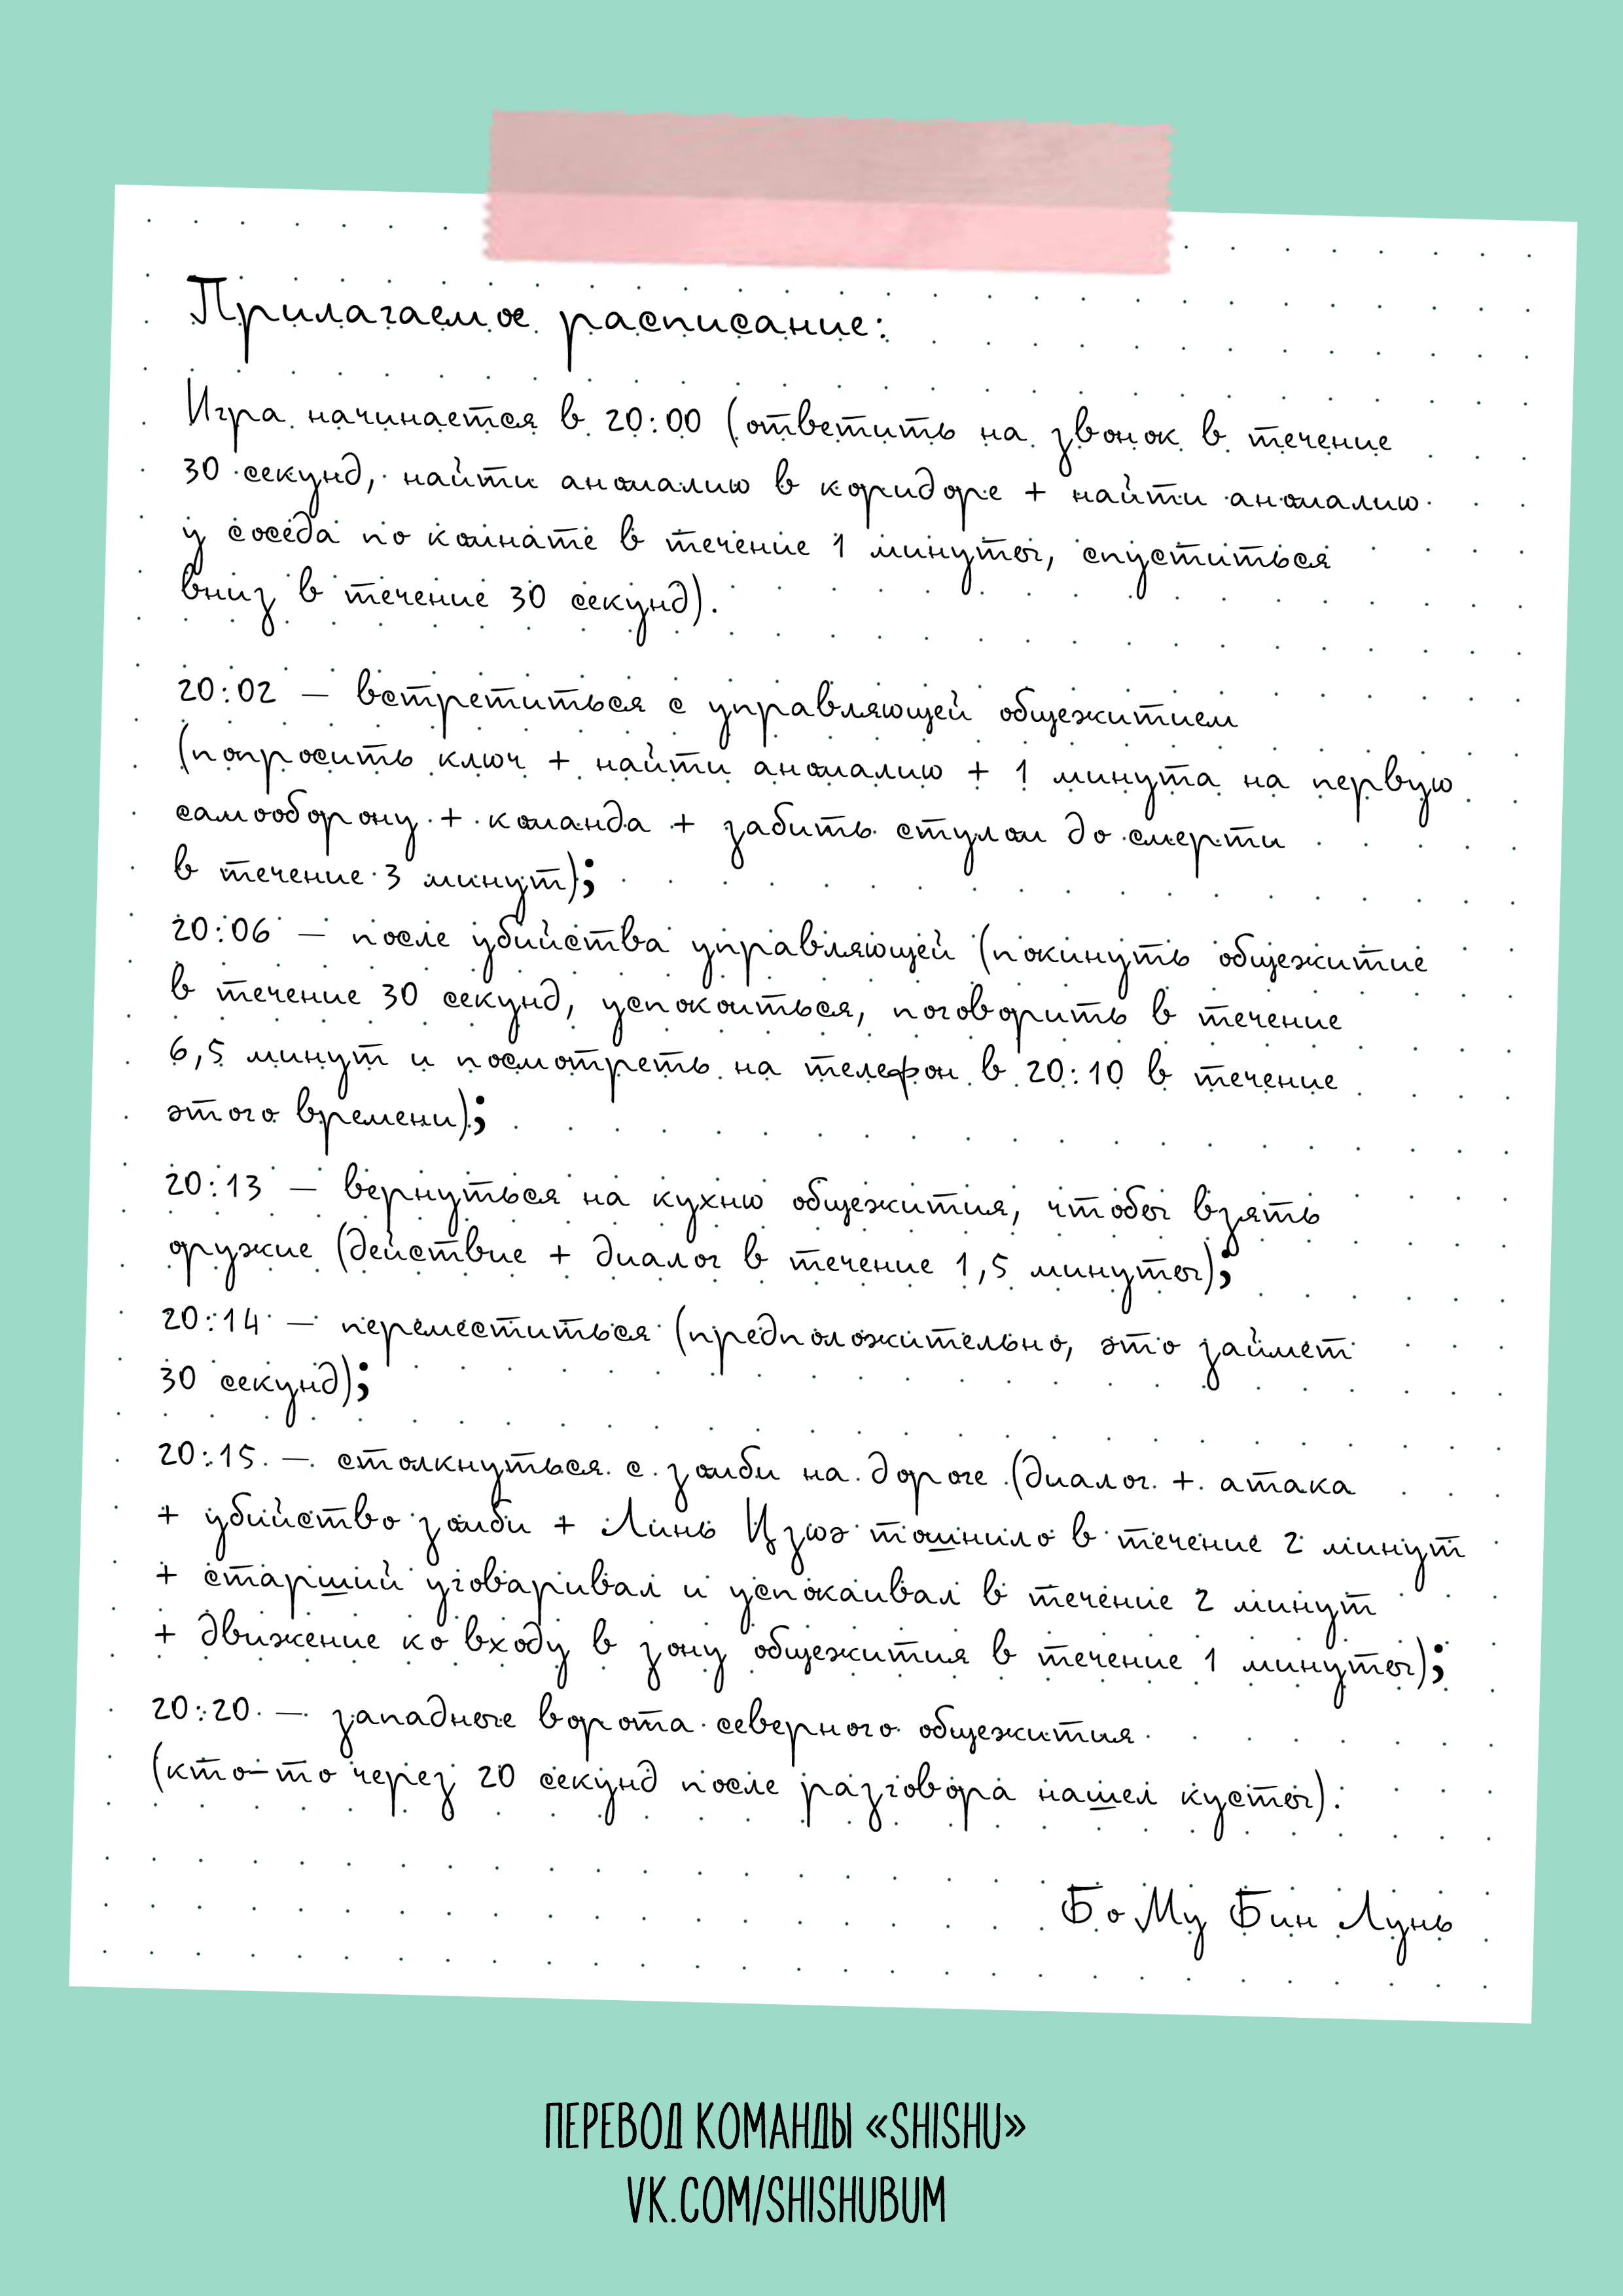 Прилагаемое расписание:
Игра начинается в 20:00 (ответить на звонок в течение
30 секунд, найти аномалию в коридоре + найти аномалию
у соседа по комнате в течение 1 минуты, спуститься
вниз в течение 30 секунд).
20:02 — встретиться с управляющей общежитием
(попросить ключ + найти аномалию + 1 минута на первую
самооборону + команда + забить стулом до смерти
в течение 3 минут);
20:06 — после убийства управляющей (покинуть общежитие
в течение 30 секунд, успокоиться, поговорить в течение
6,5 минут и посмотреть на телефон в 20:10 в течение
этого времени);
20:13 — вернуться на кухню общежития, чтобы взять
оружие (действие + диалог в течение 1,5 минуты);
20:14 — переместиться (предположительно, это займет
30 секунд);
20:15 — столкнуться с зомби на дороге (диалог + атака
+ убийство зомби + Линь Цзюэ тошнило в течение 2 минут
+ старший уговаривал и успокаивал в течение 2 минут
+ движение ко входу в зону общежития в течение 1 минуты);
20:20 — западные ворота северного общежития
(кто-то через 20 секунд после разговора нашел кусты).
Бо Му Бин Лунь
ПЕРЕВОД КОМАНДЫ «SHISHU»
VK.COM/SHISHUBUM